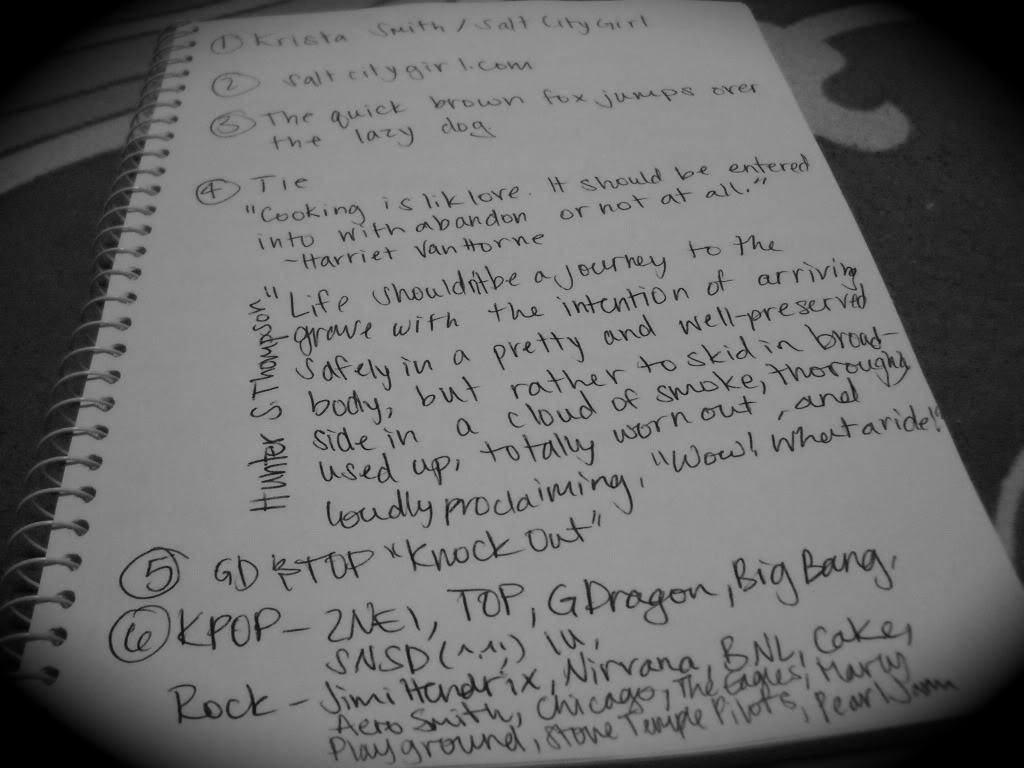 ① Krista Smith / Salt City Girl
② saltcitygirl.com
③ The quick brown fox jumps over
the lazy dog
④ Tie
"Cooking is lik love. It should be entered
into with abandon or not at all."
~Harriet Van Horne
"Life shouldn't be a journey to the
grave with the intention of arriving
safely in a pretty and well-preserved
body, but rather to skid in broad-
side in a cloud of smoke, thoroughly
used up, totally worn out, and
loudly proclaiming, "Wow! What a ride!"
Hunter S. Thompson
⑤ GD & TOP "Knock Out"
⑥ KPOP - 2NE1, TOP, GDragon, Big Bang,
SNSD (^.^;) IU,
Rock - Jimi Hendrix, Nirvana, BNL, Cake,
Aero Smith, Chicago, The Eagles, Marcy
Playground, Stone Temple Pilots, Pearl Jam